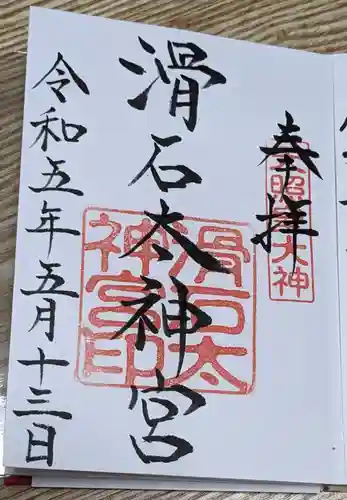 奉拝
天照大神
滑石太神宮
滑石太神宮印
令和五年五月十三日